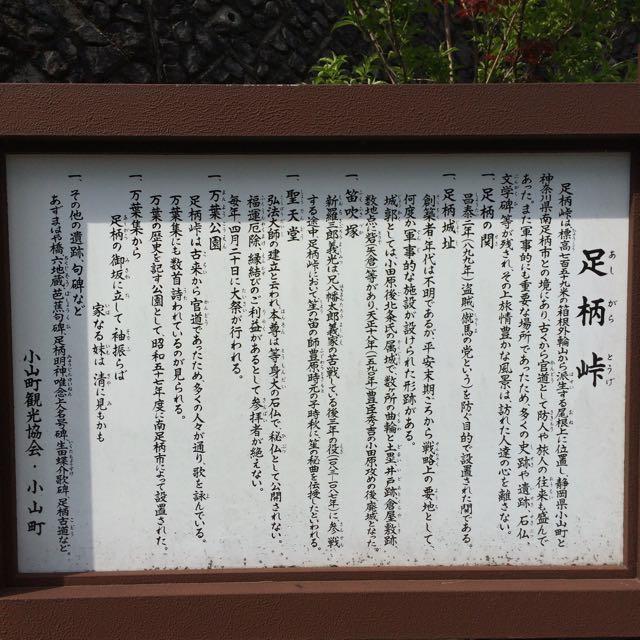 足柄峠
あしがらとうげ
足柄峠は標高七百五十九米の箱根外輪山から派生する尾根上に位置し、静岡県小山町と
神奈川県南足柄市との境にあり、古くから官道として防人や旅人の往来も盛んで
あった。また軍事的にも重要な場所であったため、多くの史跡や遺跡、石仏、
文学碑、等が残され、その上旅情豊かな風景は、訪れた人達の心を離さない。
一、足柄の関
昌泰二年(八九九)盗賊(僦馬の党という)を防ぐ目的で設置された関である。
一、足柄城址
創築者、年代は不明であるが、平安末期ころから戦略上の要地として
何度か軍事的な施設が設けられた形跡がある。
城郭としては、小田原後北条氏の属城で、数ヶ所の曲輪と土塁、井戸跡、倉屋敷跡
数地点に砦(天倉)等があり、天正十八年(一五九〇年)豊臣秀吉の小田原攻めの後廃城となった。
一、笛吹塚
新羅三郎義光が兄八幡太郎義家の苦戦している後三年の役(一〇八三〜一〇八七年)に参戦
する途中、足柄峠において笙の笛の師豊原時元の子時秋に笙の秘曲を伝授したといわれる。
一、聖天堂
弘法大師の建立と云われ、本尊は等身大の石仏で、秘仏として公開されない。
福運、厄除、縁結びのご利益があるとして参拝者が絶えない。
毎年四月二十日に大祭が行われる。
一、万葉公園
足柄峠は古来から官道であったため、多くの人々が通り、歌を詠んでいる。
万葉集にも数首詩われているのが見られる。
万葉の歴史を記す公園として、昭和五十七年度に南足柄市によって設置された。
一、万葉集から
足柄の御坂に立して袖振らば
家なる妹は清に見もかも
一、その他の遺跡、句碑など
あずまはや橋、六地蔵、芭蕉句碑、足柄明神、唯念上人名号碑、生田蝶介歌碑、足柄古道など。
小山町観光協会・小山町